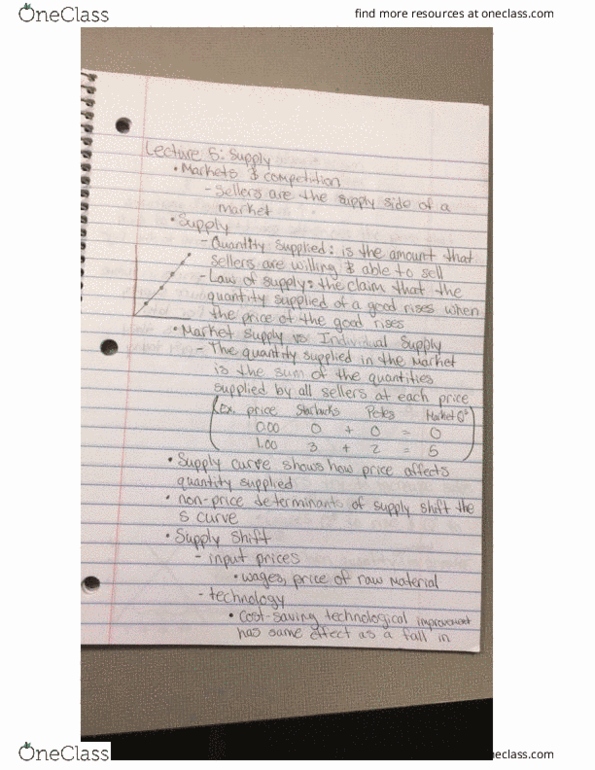 OneClass
find more resources at oneclass.com
Lecture 5: Supply
• Markets & competition
- Sellers are the supply side of a
market
• Supply
- Quantity Supplied: is the amount that
sellers are willing & able to sell
- Law of supply: the claim that the
quantity supplied of a good rises when
the price of the good rises
• Market supply vs Individual Supply
- The quantity supplied in the market
is the sum of the quantities
supplied by all sellers at each price
(ex. price Starbucks Petes Market Qs
0.00 0 + 0 = 0
1.00 3 + 2 = 5
• Supply curve shows how price affects
quantity supplied
• non-price determinants of supply shift the
S curve
• Supply shift
- input prices
• wages, price of raw material
- technology
• cost-saving technological improvement
has same effect as a fall in
OneClass
oneclass.com